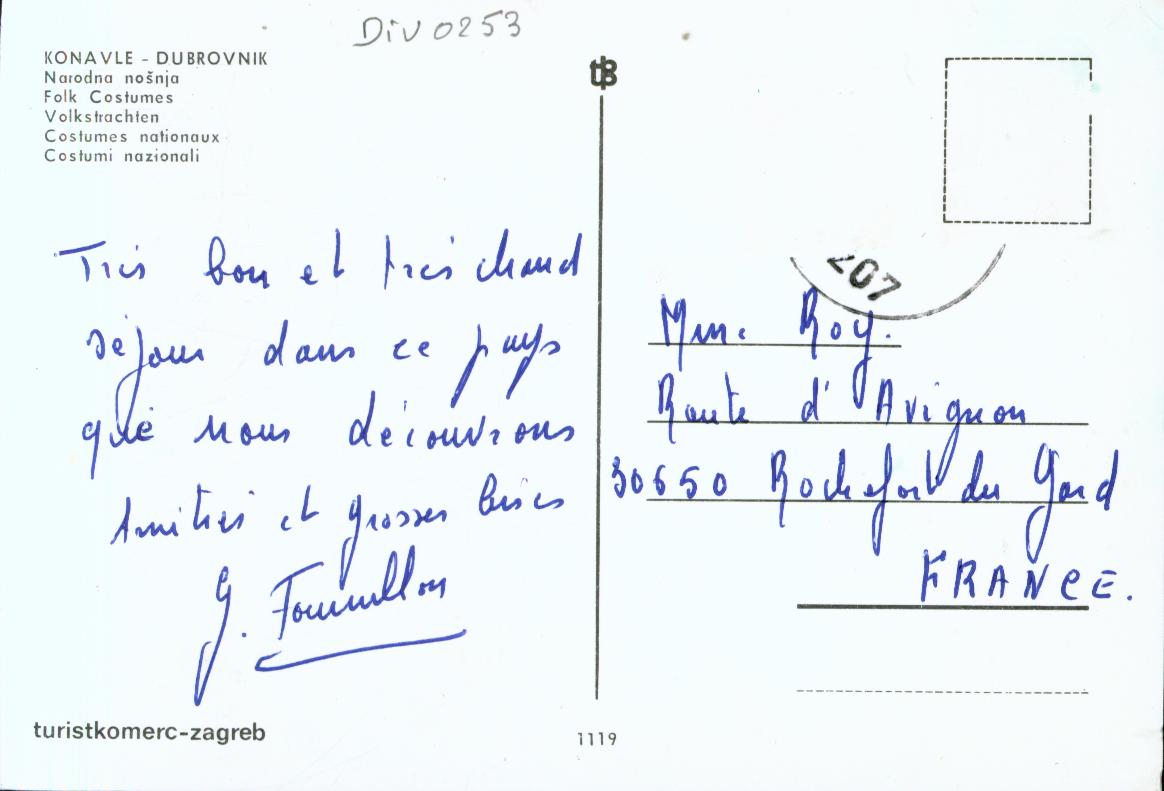 Div 0253
KONAVLE - DUBROVNIK
Narodna nošnja
Folk Costumes
Volkstrachten
Costumes nationaux
Costumi nazionali
Très bon et très chaud
séjour dans ce pays
que nous découvrons
Amitiés et grosses bises
G.
turistkomerc-zagreb
1119
207
Mme Roy.
Route d'Avignon
30650 Rochefort du Gard
FRANCE.